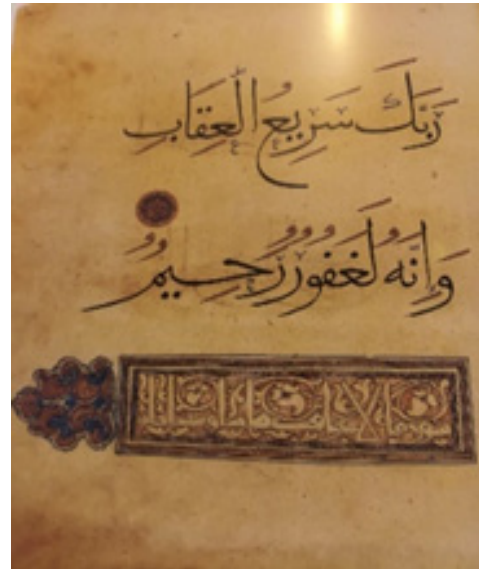 رَبَّكَ سَرِيعُ الْعِقَابِ
وَإِنَّهُ لَغَفُورٌ رَّحِيمٌ